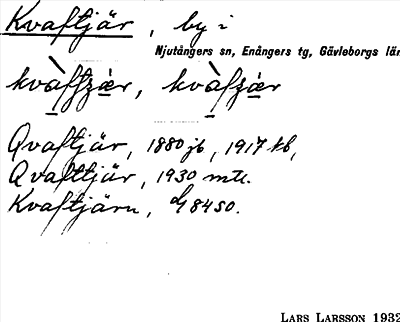 Kvaftjär, by i
Njutångers sn, Enångers tg, Gävleborgs län
Qvaftjär, 1880 jb, 1917 kb,
Qvafttjär, 1930 mtl.
Kvaftjärn, 8450.
LARS LARSSON 1932